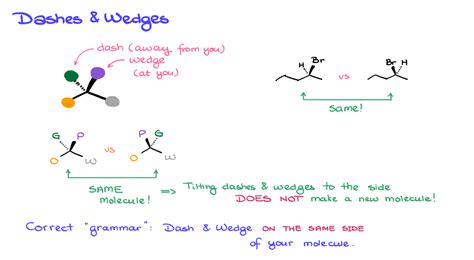 Dashes & Wedges
dash (away from you)
wedge
(at you)
H Br
vs
Br H
Same!
G P
O W
vs
P G
O W
SAME
molecule!
⇒ Tilting dashes & wedges to the side
DOES NOT make a new molecule!
Correct "grammar": Dash & Wedge ON THE SAME SIDE
of your molecule.